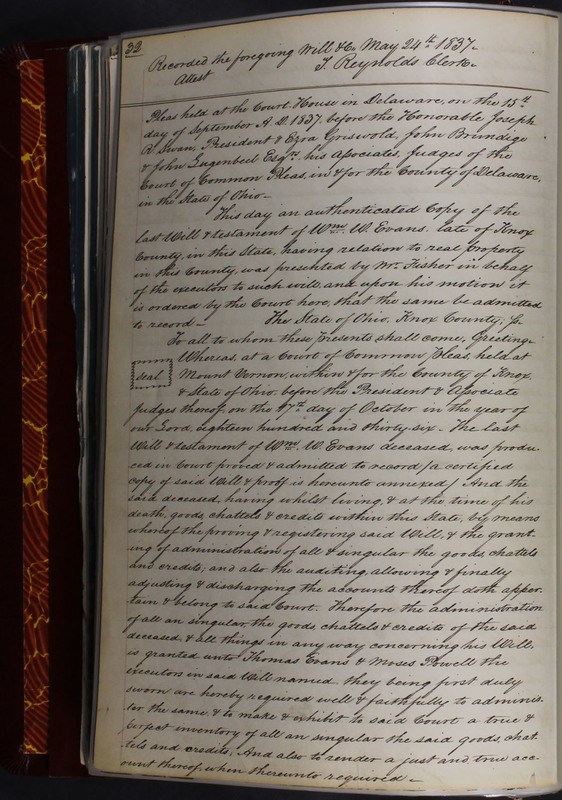 32
Recorded the foregoing Will &c. May 24th 1837.
Attest T. Reynolds Clerk.
Pleas held at the Court House in Delaware, on the 15th
day of September A.D. 1837, before the Honorable Joseph
R. Swan, President & Ezra Griswold, John Brundige
& John Lugenbeel Esqrs, his Associates, Judges of the
Court of Common Pleas, in & for the County of Delaware,
in the State of Ohio.
This day an authenticated Copy of the
last Will & testament of Wm. W. Evans, late of Knox
County, in this State, having relation to real property
in this County, was presented by Mr. Fisher in behalf
of the executors to such will, and upon his motion it
is ordered by the Court here, that the same be admitted
to record — The State of Ohio, Knox County, ss.
To all to whom these presents shall come, Greeting.
seal Whereas, at a Court of Common Pleas, held at
Mount Vernon, within & for the County of Knox
& State of Ohio, before the President & Associate
Judges thereof, on the 17th day of October in the year of
our Lord, eighteen hundred and thirty six — The last
Will & testament of Wm. W. Evans deceased, was produ-
ced in Court proved & admitted to record /a certified
copy of said Will & proof is hereunto annexed/ And the
said deceased, having whilst living, & at the time of his
death, goods, chattels & credits within this State, by means
whereof the proving & registering said Will, & the grant-
ing of administration of all & singular the goods, chattels
and credits; and also the auditing, allowing & finally
adjusting & discharging the accounts thereof doth apper-
tain & belong to said Court. Therefore the administration
of all an singular, the goods, chattels & credits of the said
deceased, & all things in any way concerning his Will,
is granted unto Thomas Evans & Moses Powell the
executors in said Will named, they being first duly
sworn are hereby required well & faithfully to adminis-
ter the same, & to make & exhibit to said Court a true &
perfect inventory of all an singular the said goods, chat-
tels and credits. And also to render a just and true acc-
ount thereof, when thereunto required —